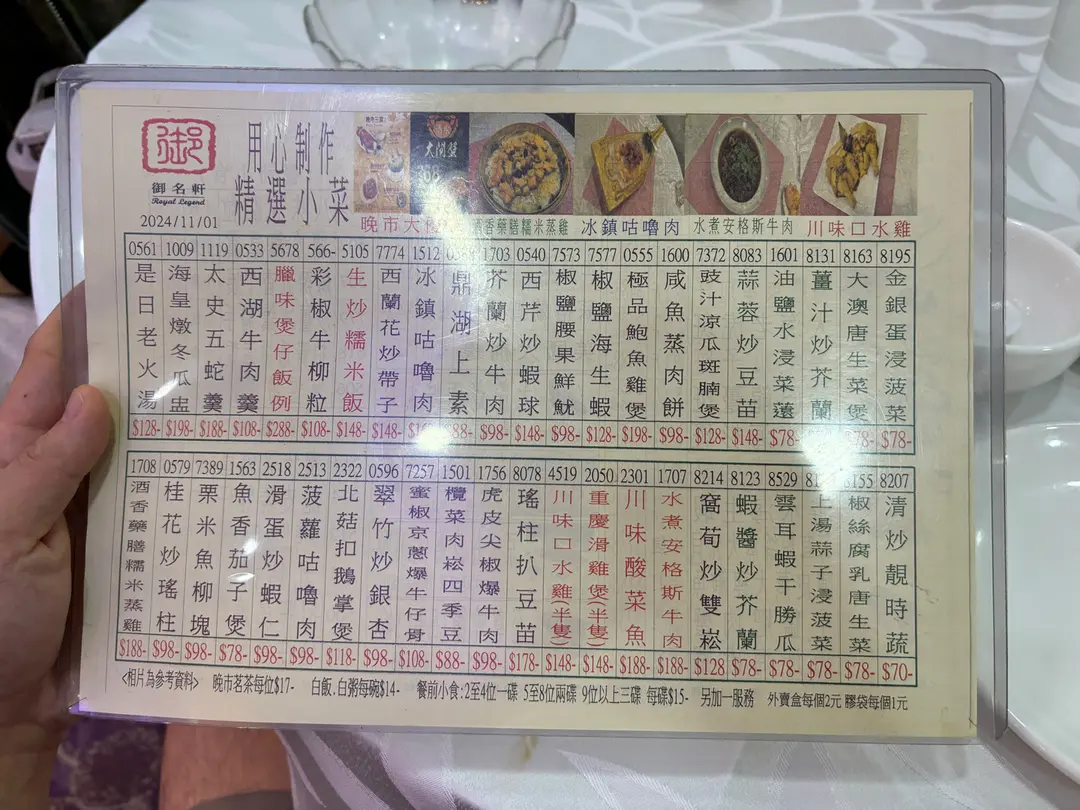 御
御名軒
Royal Legend
2024/11/01
用心制作
精選小菜
大閘蟹
晚市大
酒香藥膳糯米蒸雞
冰鎮咕嚕肉
水煮安格斯牛肉
川味口水雞
0561 是日老火湯 $128-
1009 海皇燉冬瓜盅 $198-
1119 太史五蛇羹 $188-
0533 西湖牛肉羹 $108-
5678 臘味煲仔飯例 $288-
566- 彩椒牛柳粒 $108-
5105 生炒糯米飯 $148-
7774 西蘭花炒帶子 $148-
1512 冰鎮咕嚕肉
鼎湖上素 $88-
1703 芥蘭炒牛肉 $98-
0540 西芹炒蝦球 $148-
7573 椒鹽腰果鮮魷 $98-
7577 椒鹽海生蝦 $128-
0555 極品鮑魚雞煲 $198-
1600 咸魚蒸肉餅 $98-
7372 豉汁涼瓜斑腩煲 $128-
8083 蒜蓉炒豆苗 $148-
1601 油鹽水浸菜薳 $78-
8131 薑汁炒芥蘭
8163 大澳唐生菜煲 $78-
8195 金銀蛋浸菠菜 $78-
1708 酒香藥膳糯米蒸雞 $188-
0579 桂花炒瑤柱 $98-
7389 粟米魚柳塊 $98-
1563 魚香茄子煲 $78-
2518 滑蛋炒蝦仁 $98-
2513 菠蘿咕嚕肉 $98-
2322 北菇扣鵝掌煲 $118-
0596 翠竹炒銀杏 $98-
7257 蜜椒京蔥爆牛仔骨 $108-
1501 欖菜肉崧四季豆 $88-
1756 虎皮尖椒爆牛肉 $98-
8078 瑤柱扒豆苗 $178-
4519 川味口水雞(半隻) $148-
2050 重慶滑雞煲(半隻) $148-
2301 川味酸菜魚 $188-
1707 水煮安格斯牛肉 $188-
8214 窩荀炒雙崧 $128
8123 蝦醬炒芥蘭 $78-
8529 雲耳蝦干勝瓜 $78-
上湯蒜子浸菠菜 $78-
8155 椒絲腐乳唐生菜 $78-
8207 清炒靚時蔬 $70-
<相片為參考資料> 晚市茗茶每位$17- 白飯.白粥每碗$14- 餐前小食:2至4位一碟 5至8位兩碟 9位以上三碟 每碟$15- 另加一服務 外賣盒每個2元 膠袋每個1元